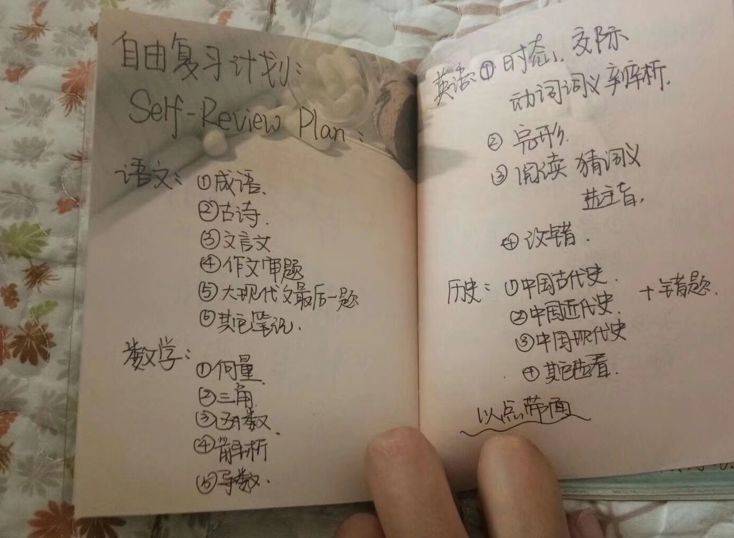 自由复习计划:
Self-Review Plan:
语文: ①成语.
②古诗.
③文言文
④作文审题
⑤大现代文最后一题
⑥其它笔记.
数学: ①向量
②三角
③函数.
④解析
⑤导数.
英语: ①时态、交际
动词词义辨析.
②完形.
③阅读 猜词义
若注者,
④改错.
历史: ①中国古代史.
②中国近代史. +错题.
③中国现代史
④其它选看.
以点带面